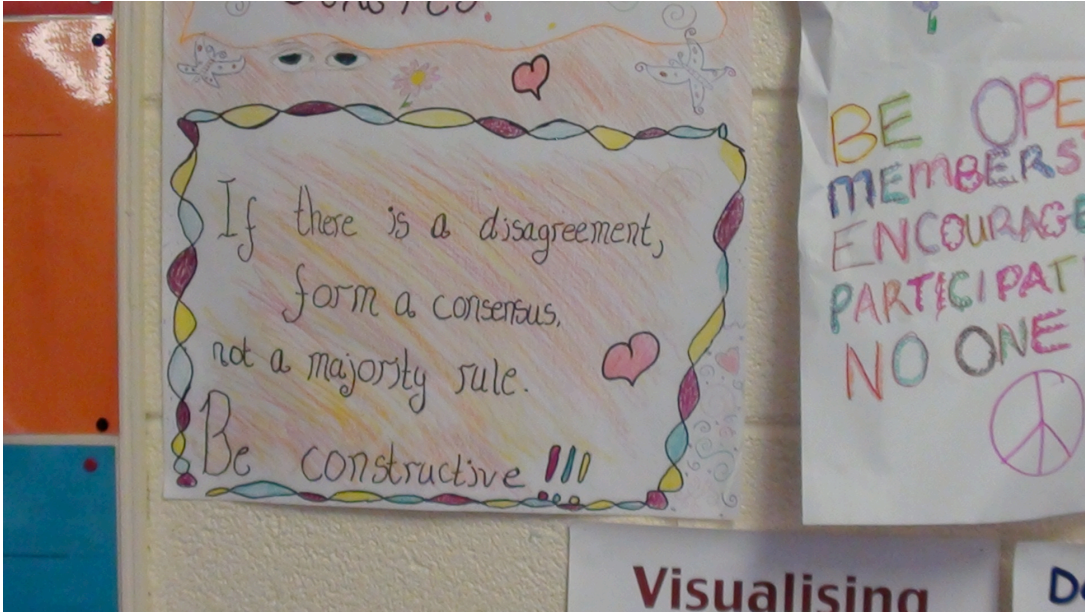 If there is a disagreement,
form a consensus,
not a majority rule.
Be constructive!!!
BE
MEMBERS
ENCOURAGE
NO ONE
Visualising